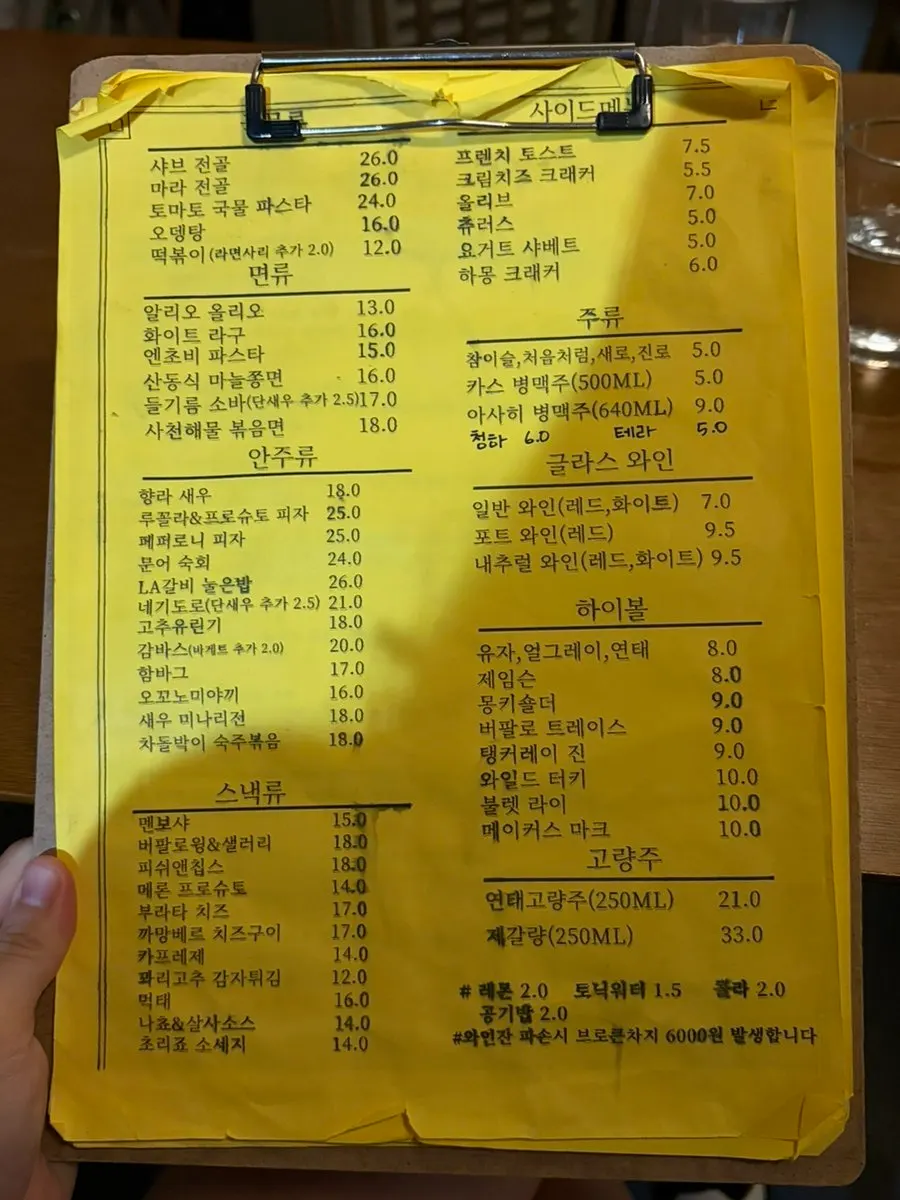 샤브 전골 26.0
마라 전골 26.0
토마토 국물 파스타 24.0
오뎅탕 16.0
떡볶이(라면사리 추가 2.0) 12.0
면류
알리오 올리오 13.0
화이트 라구 16.0
엔초비 파스타 15.0
산동식 마늘쫑면 16.0
들기름 소바(단새우 추가 2.5)17.0
사천해물 볶음면 18.0
안주류
향라 새우 18.0
루꼴라&프로슈토 피자 25.0
페퍼로니 피자 25.0
문어 숙회 24.0
LA갈비 눌은밥 26.0
네기도로(단새우 추가 2.5) 21.0
고추유린기 18.0
감바스(바게트 추가 2.0) 20.0
함바그 17.0
오꼬노미야끼 16.0
새우 미나리전 18.0
차돌박이 숙주볶음 18.0
스낵류
멘보샤 15.0
버팔로윙&샐러리 18.0
피쉬앤칩스 18.0
메론 프로슈토 14.0
부라타 치즈 17.0
까망베르 치즈구이 17.0
카프레제 14.0
꽈리고추 감자튀김 12.0
먹태 16.0
나쵸&살사소스 14.0
초리죠 소세지 14.0
사이드메뉴
프렌치 토스트 7.5
크림치즈 크래커 5.5
올리브 7.0
츄러스 5.0
요거트 샤베트 5.0
하몽 크래커 6.0
주류
참이슬,처음처럼,새로,진로 5.0
카스 병맥주(500ML) 5.0
아사히 병맥주(640ML) 9.0
청하 6.0 테라 5.0
글라스 와인
일반 와인(레드,화이트) 7.0
포트 와인(레드) 9.5
내추럴 와인(레드,화이트) 9.5
하이볼
유자,얼그레이,연태 8.0
제임슨 8.0
몽키숄더 9.0
버팔로 트레이스 9.0
탱커레이 진 9.0
와일드 터키 10.0
불렛 라이 10.0
메이커스 마크 10.0
고량주
연태고량주(250ML) 21.0
제갈량(250ML) 33.0
# 레몬 2.0 토닉워터 1.5 콜라 2.0
공기밥 2.0
#와인잔 파손시 브로큰차지 6000원 발생합니다